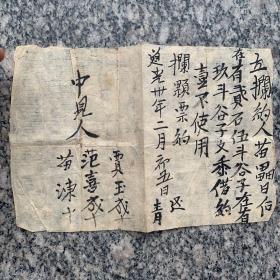 立攔約人苗 日后
存有貳石伍斗谷子存有
玖斗谷子文乔借約
壹不使用
攔顆票約
道光卅年二月初五日 立
中見人
賈玉成
范喜成
苗